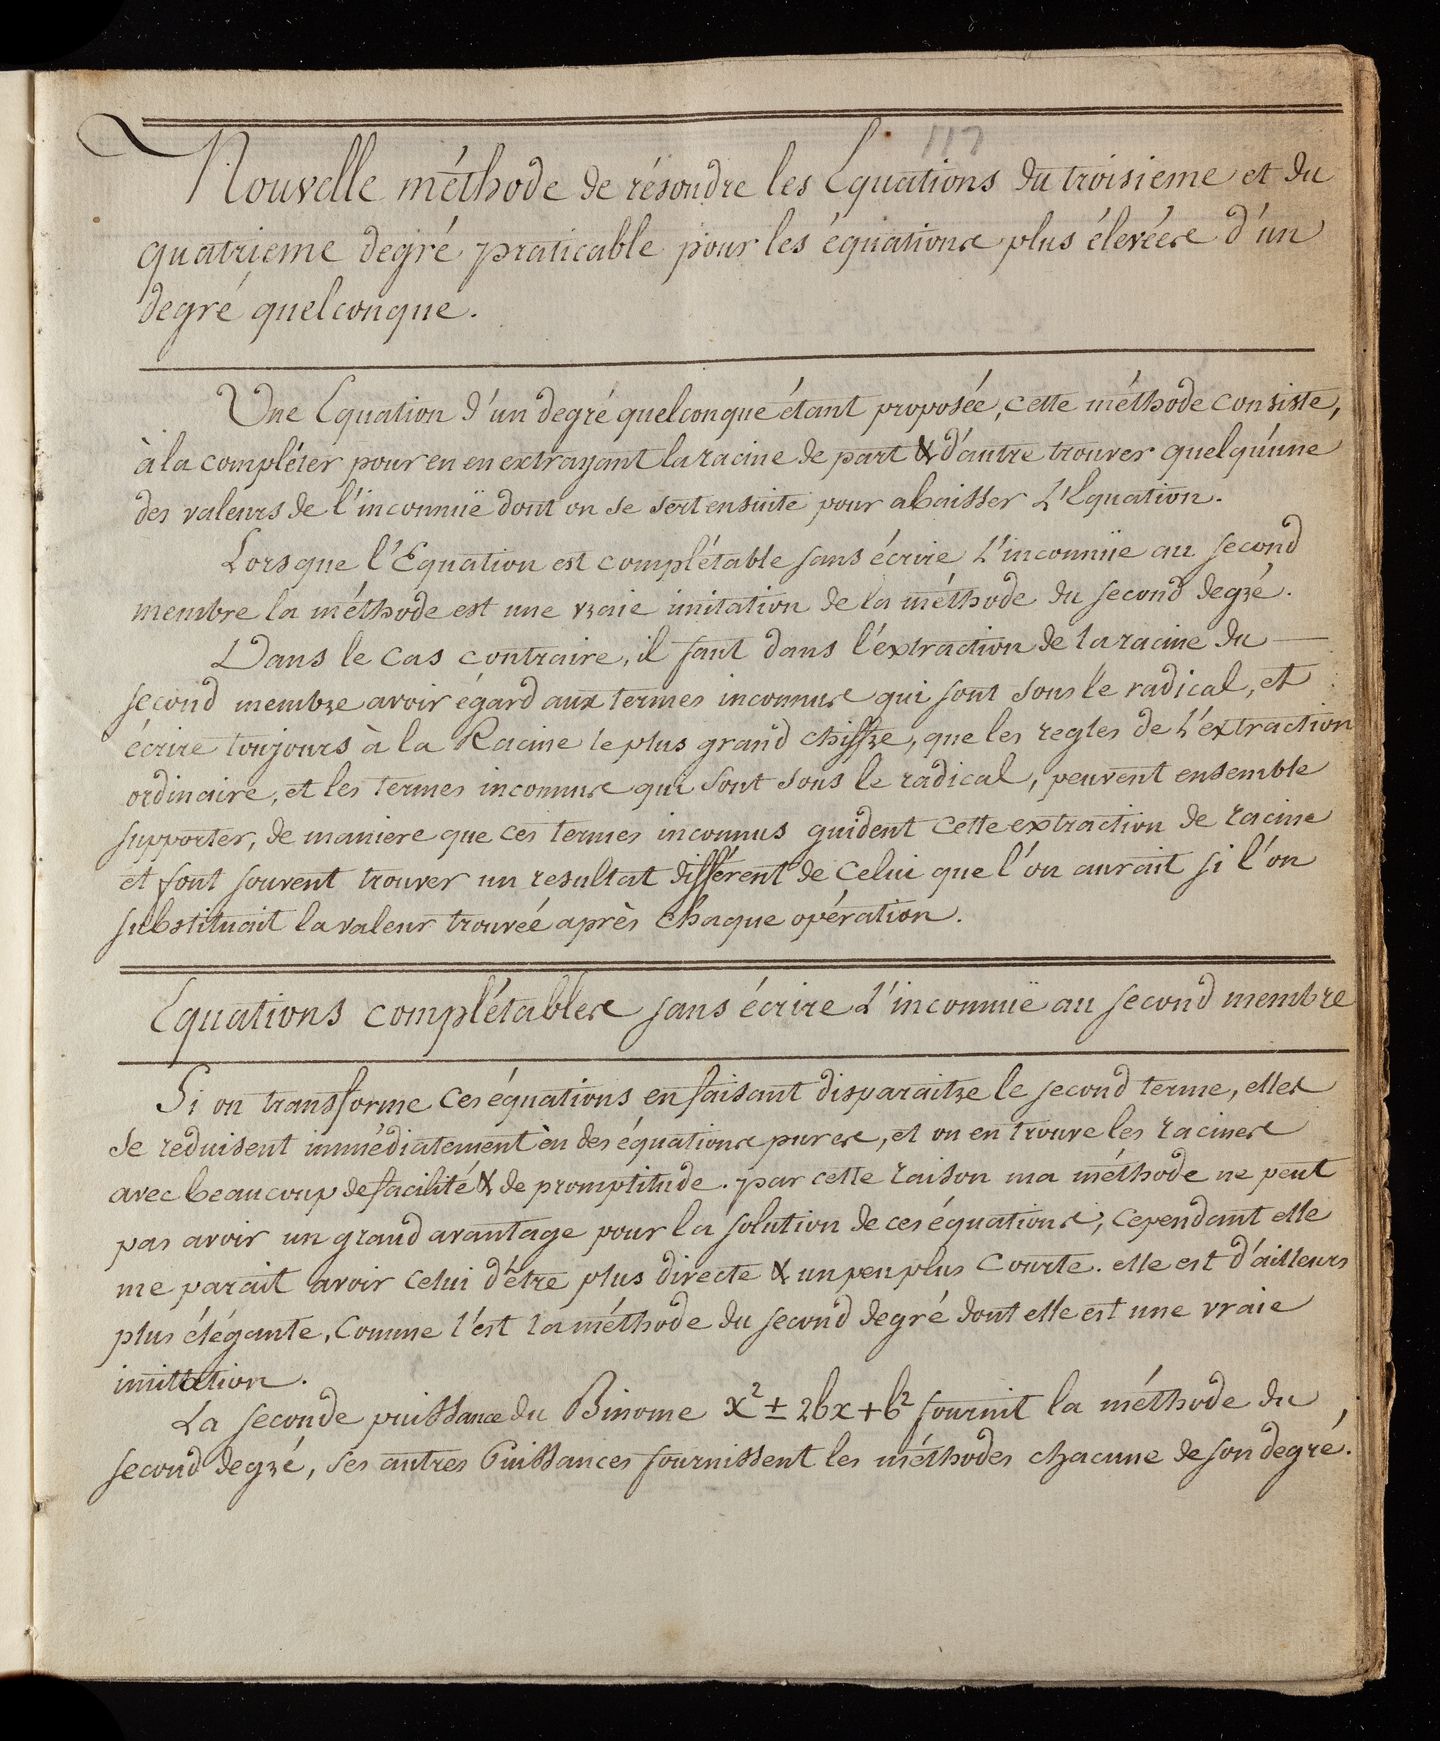 117
Nouvelle méthode de résoudre les Equations du troisieme et du
quatrieme degré praticable pour les équations plus élevées d'un
degré quelconque.
Une Equation d'un degré quelconque étant proposée, cette méthode consiste,
à la compléter pour en en extrayant la racine de part & d'autre trouver quelqu'une
des valeurs de l'inconnuë dont on se sert ensuite pour abaisser L'Equation.
Lorsque l'Equation est complétable sans écrire L'inconnüe au second
membre la méthode est une vraie imitation de la méthode du second degré.
Dans le cas contraire, il faut dans l'extraction de la racine du
second membre avoir égard aux termes inconnus qui sont sous le radical, et
écrire toujours à la Racine le plus grand chiffre, que les regles de L'extraction
ordinaire, et les termes inconnus qui sont sous le radical, peuvent ensemble
supporter, de maniere que ces termes inconnus guident cette extraction de racine
et font souvent trouver un resultat différent de celui que l'on aurait si l'on
substituait la valeur trouveé après chaque opération.
Equations complétables sans écrire L'inconnuë au second membre
Si on transforme ces équations en faisant disparaitre le second terme, elles
se reduisent immédiatement èn des équations pures, et on en trouve les racines
avec beaucoup de facilité & de promptitude. par cette raison ma méthode ne peut
pas avoir un grand avantage pour la solution de ces équations, cependant elle
me parait avoir celui d'être plus directe & un peu plus courte. elle est d'ailleurs
plus élégante, comme l'est la méthode du second degré dont elle est une vraie
imitation.
La seconde puissance du Binome x² ± 2bx + b² fournit la méthode du
second degré, ses autres Puissances fournissent les méthodes chacune de son degré.